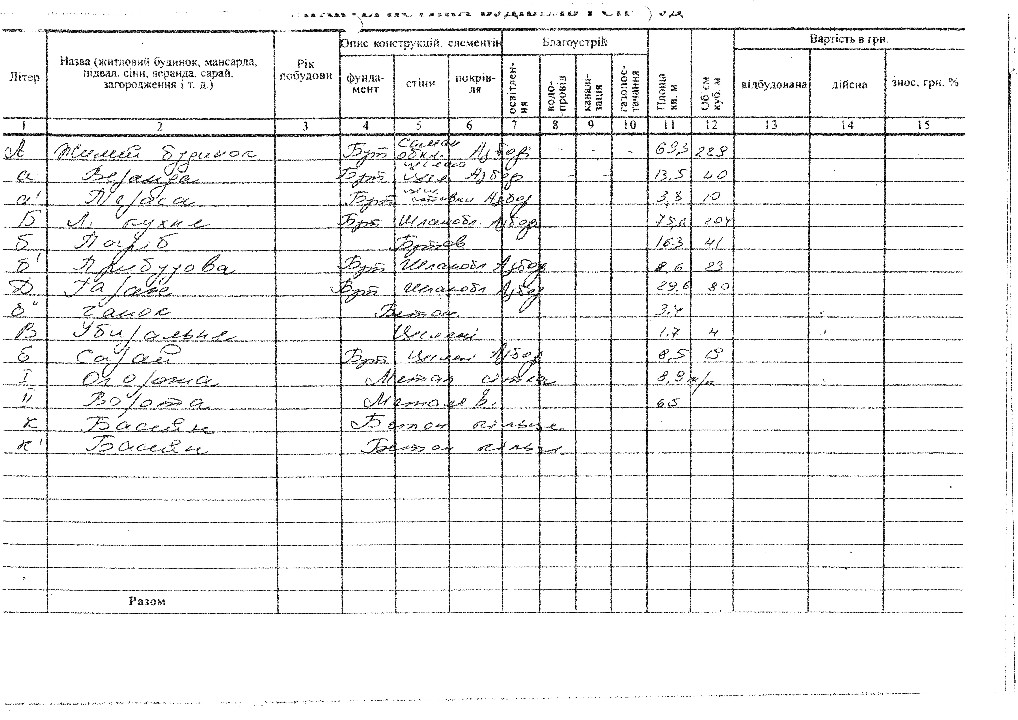 Опис конструкцій, елементів Благоустрій Вартість в грн.
Літер Назва (житловий будинок, мансарда, підвал, сіни, веранда, сарай, загородження і т. д.) Рік побудови фунда-мент стіни покрів-ля освітлен-ня водо-провід каналі-зація газопос-тачання Площа кв. м Об'єм куб. м відбудована дійсна знос. грн. %
1 2 3 4 5 6 7 8 9 10 11 12 13 14 15
А Жилий будинок Бут Саман обкл. Азбос - - - 69,3 229
а Веранда Бут цегла Азбор - - 13,5 40
а' Тераса Бут Азбор 3,3 10
Б Л. кухне Бут Шлакобл. Азбор 204
Б Погріб Бутов 16.3 41
Б' Прибудова Бут Шлакобл Азбор 8,6 23
Гараж Бут Шлакобл Азбор 29,6 80
Ганок Бетон
В Убиральне Цегляні 1.7 4
Сарай Бут Цеглян Азбор 8,5 19
I Огорожа Метал сітка 8,9 м/п
II Ворота Металеві. 6.5
К Басейн Бетон кільце
К' Басейн Бетон кільце
Разом